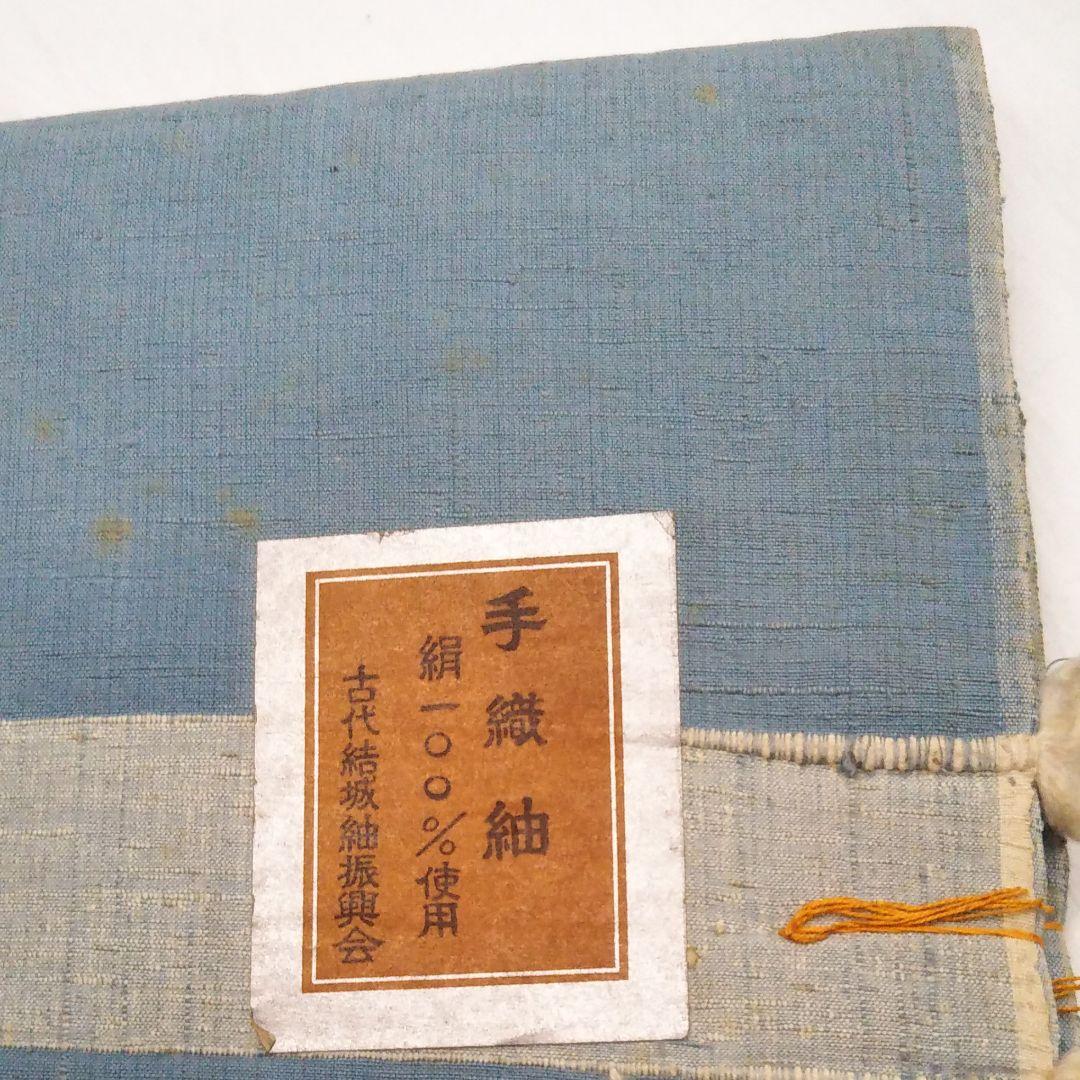 手織紬
絹一〇〇%使用
古代結城紬振興会